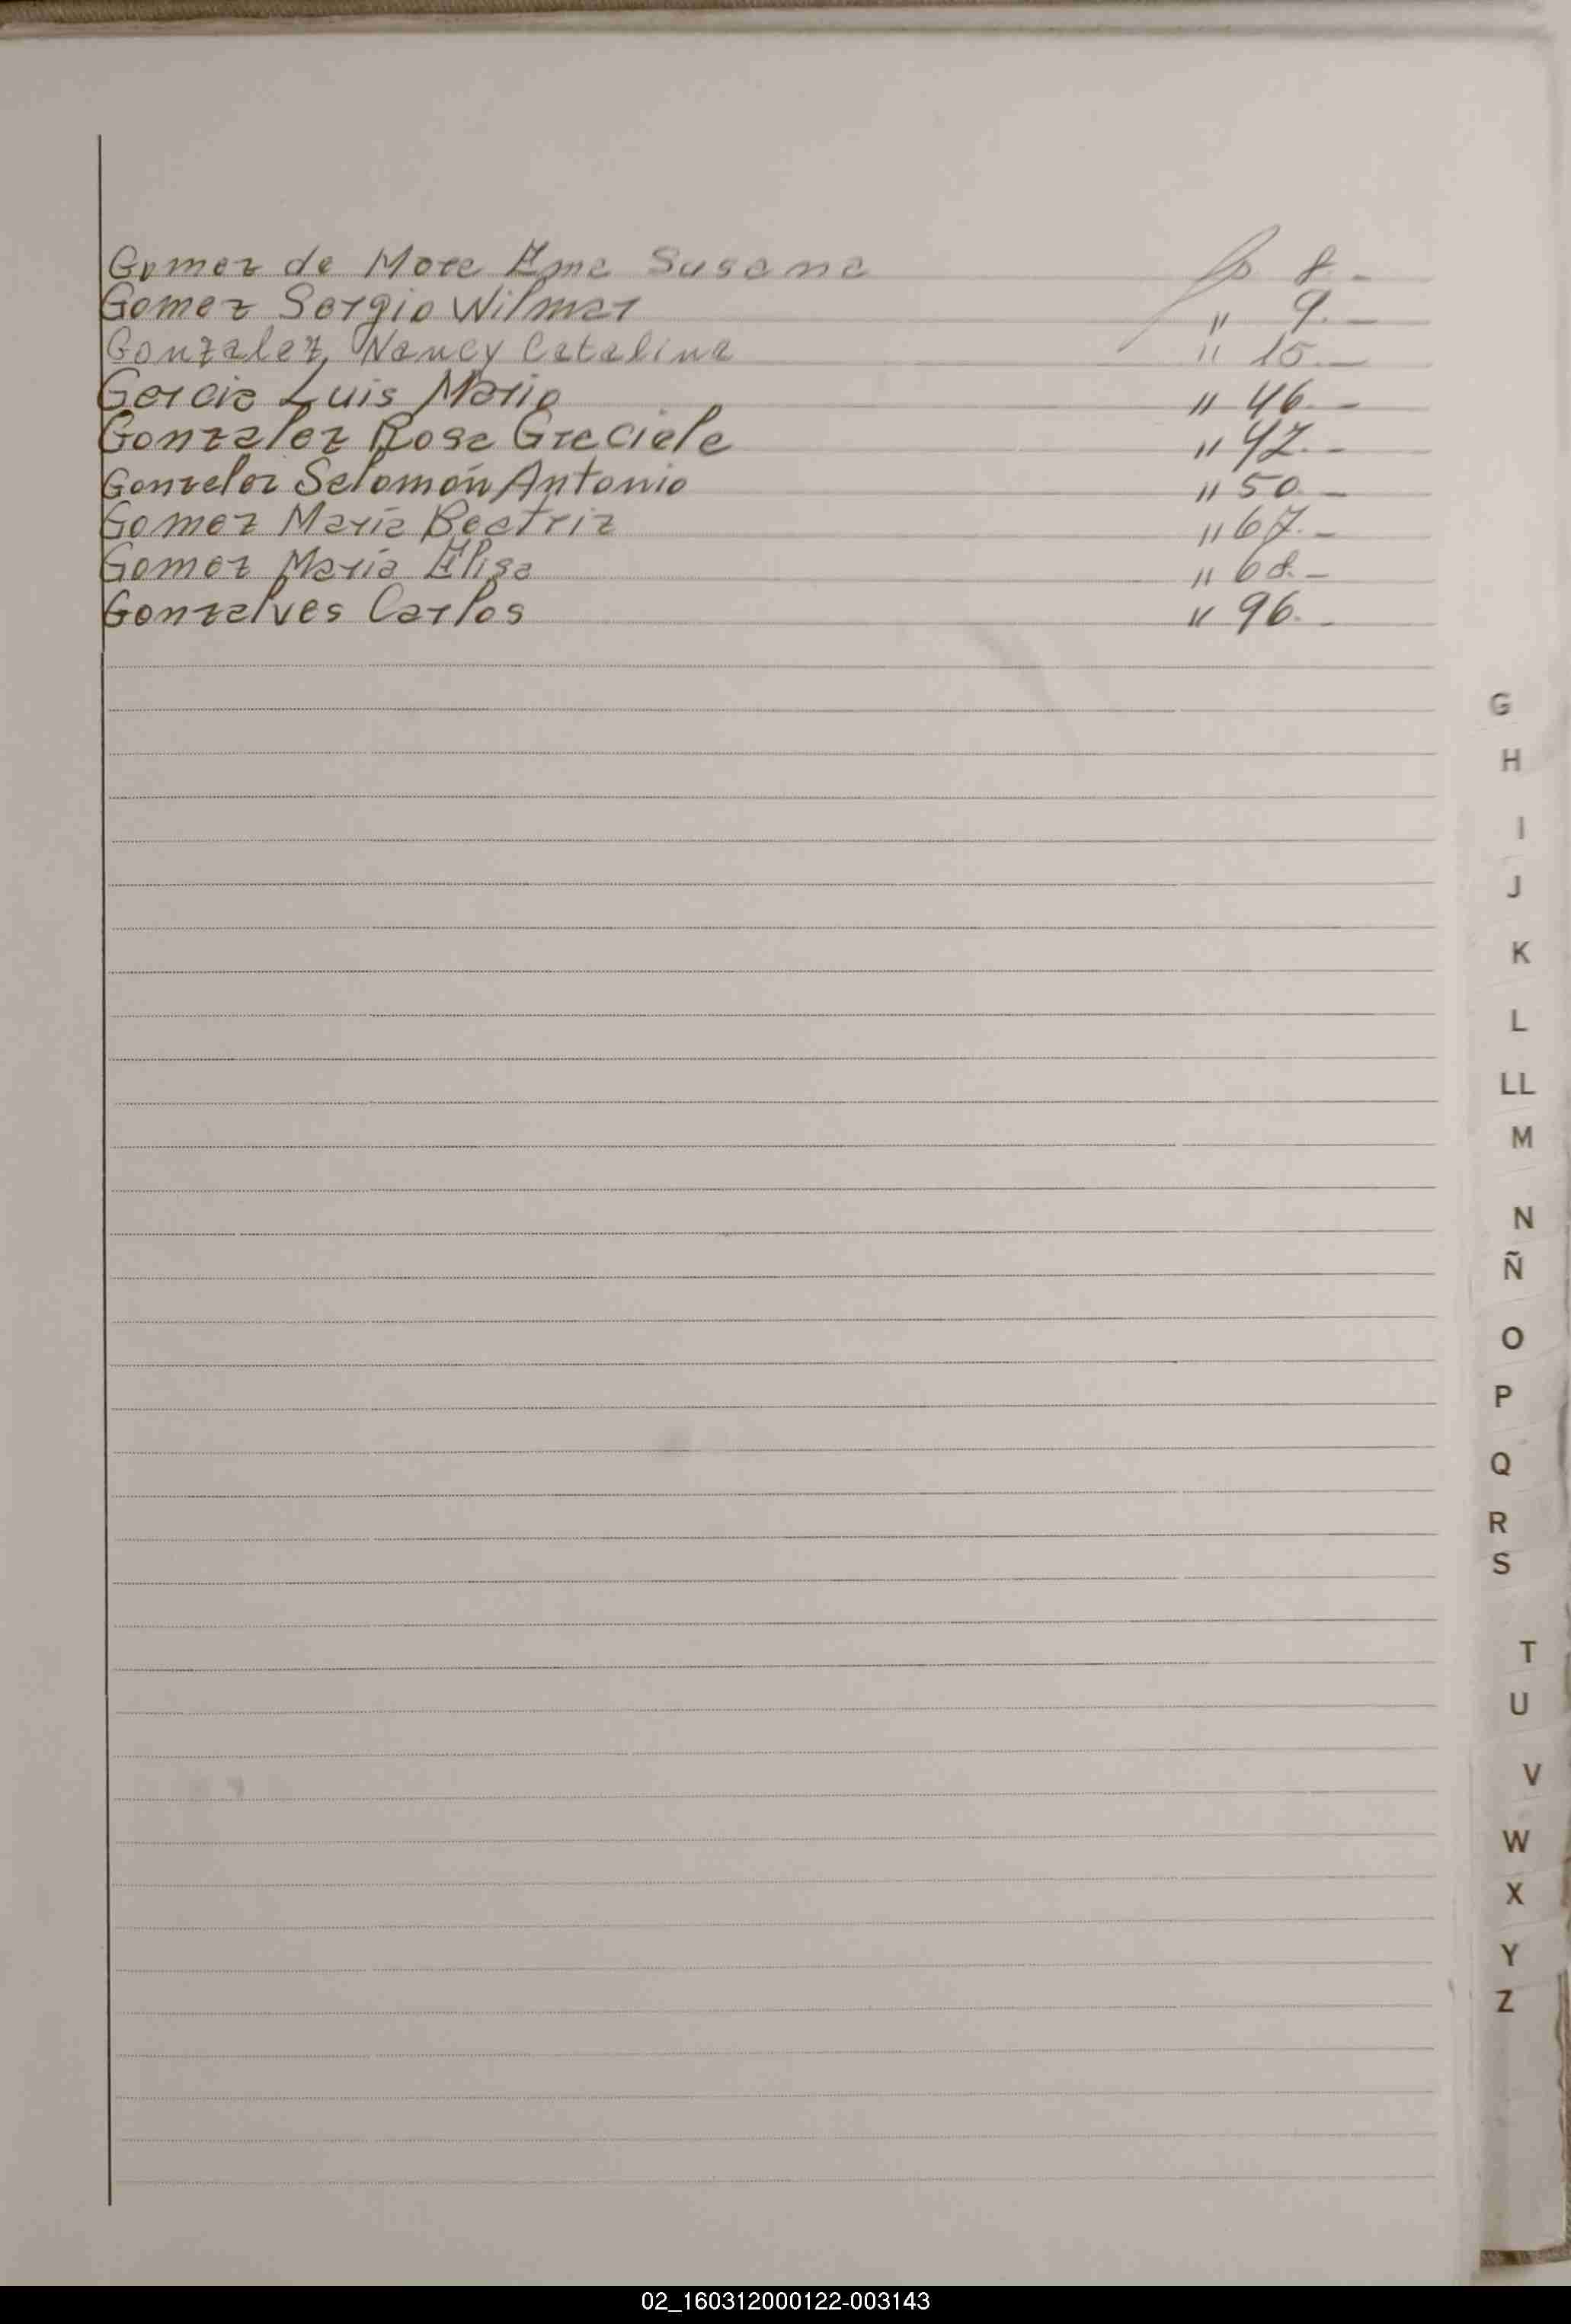 Gomez de Mora Ema Susana fo 8.-
Gomez Sergio Wilmar " 9.-
Gonzalez, Nancy Catalina " 15.-
Garcia Luis Mario " 46.-
Gonzalez Rosa Graciela " 47.-
Gonzalez Salomón Antonio " 50.-
Gomez María Beatriz " 67.-
Gomez María Elisa " 68.-
Gonzalves Carlos " 96.-
G
H
I
J
K
L
LL
M
N
Ñ
O
P
Q
R
S
T
U
V
W
X
Y
Z
02_160312000122-003143